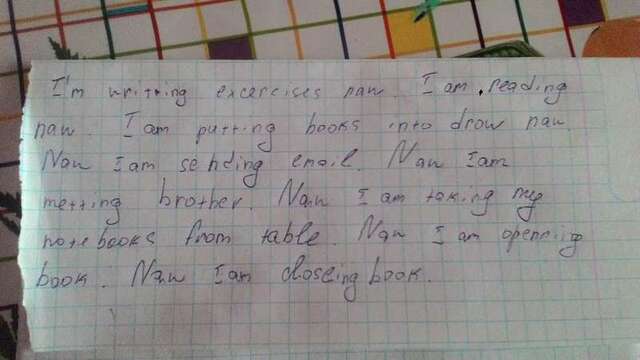 I'm writting exercises naw. I am reading
naw. I am putting books into drow naw.
Naw I am sending email. Naw I am
metting brother. Naw I am taking my
notebooks from table. Naw I am openniig
book. Naw I am closeing book.